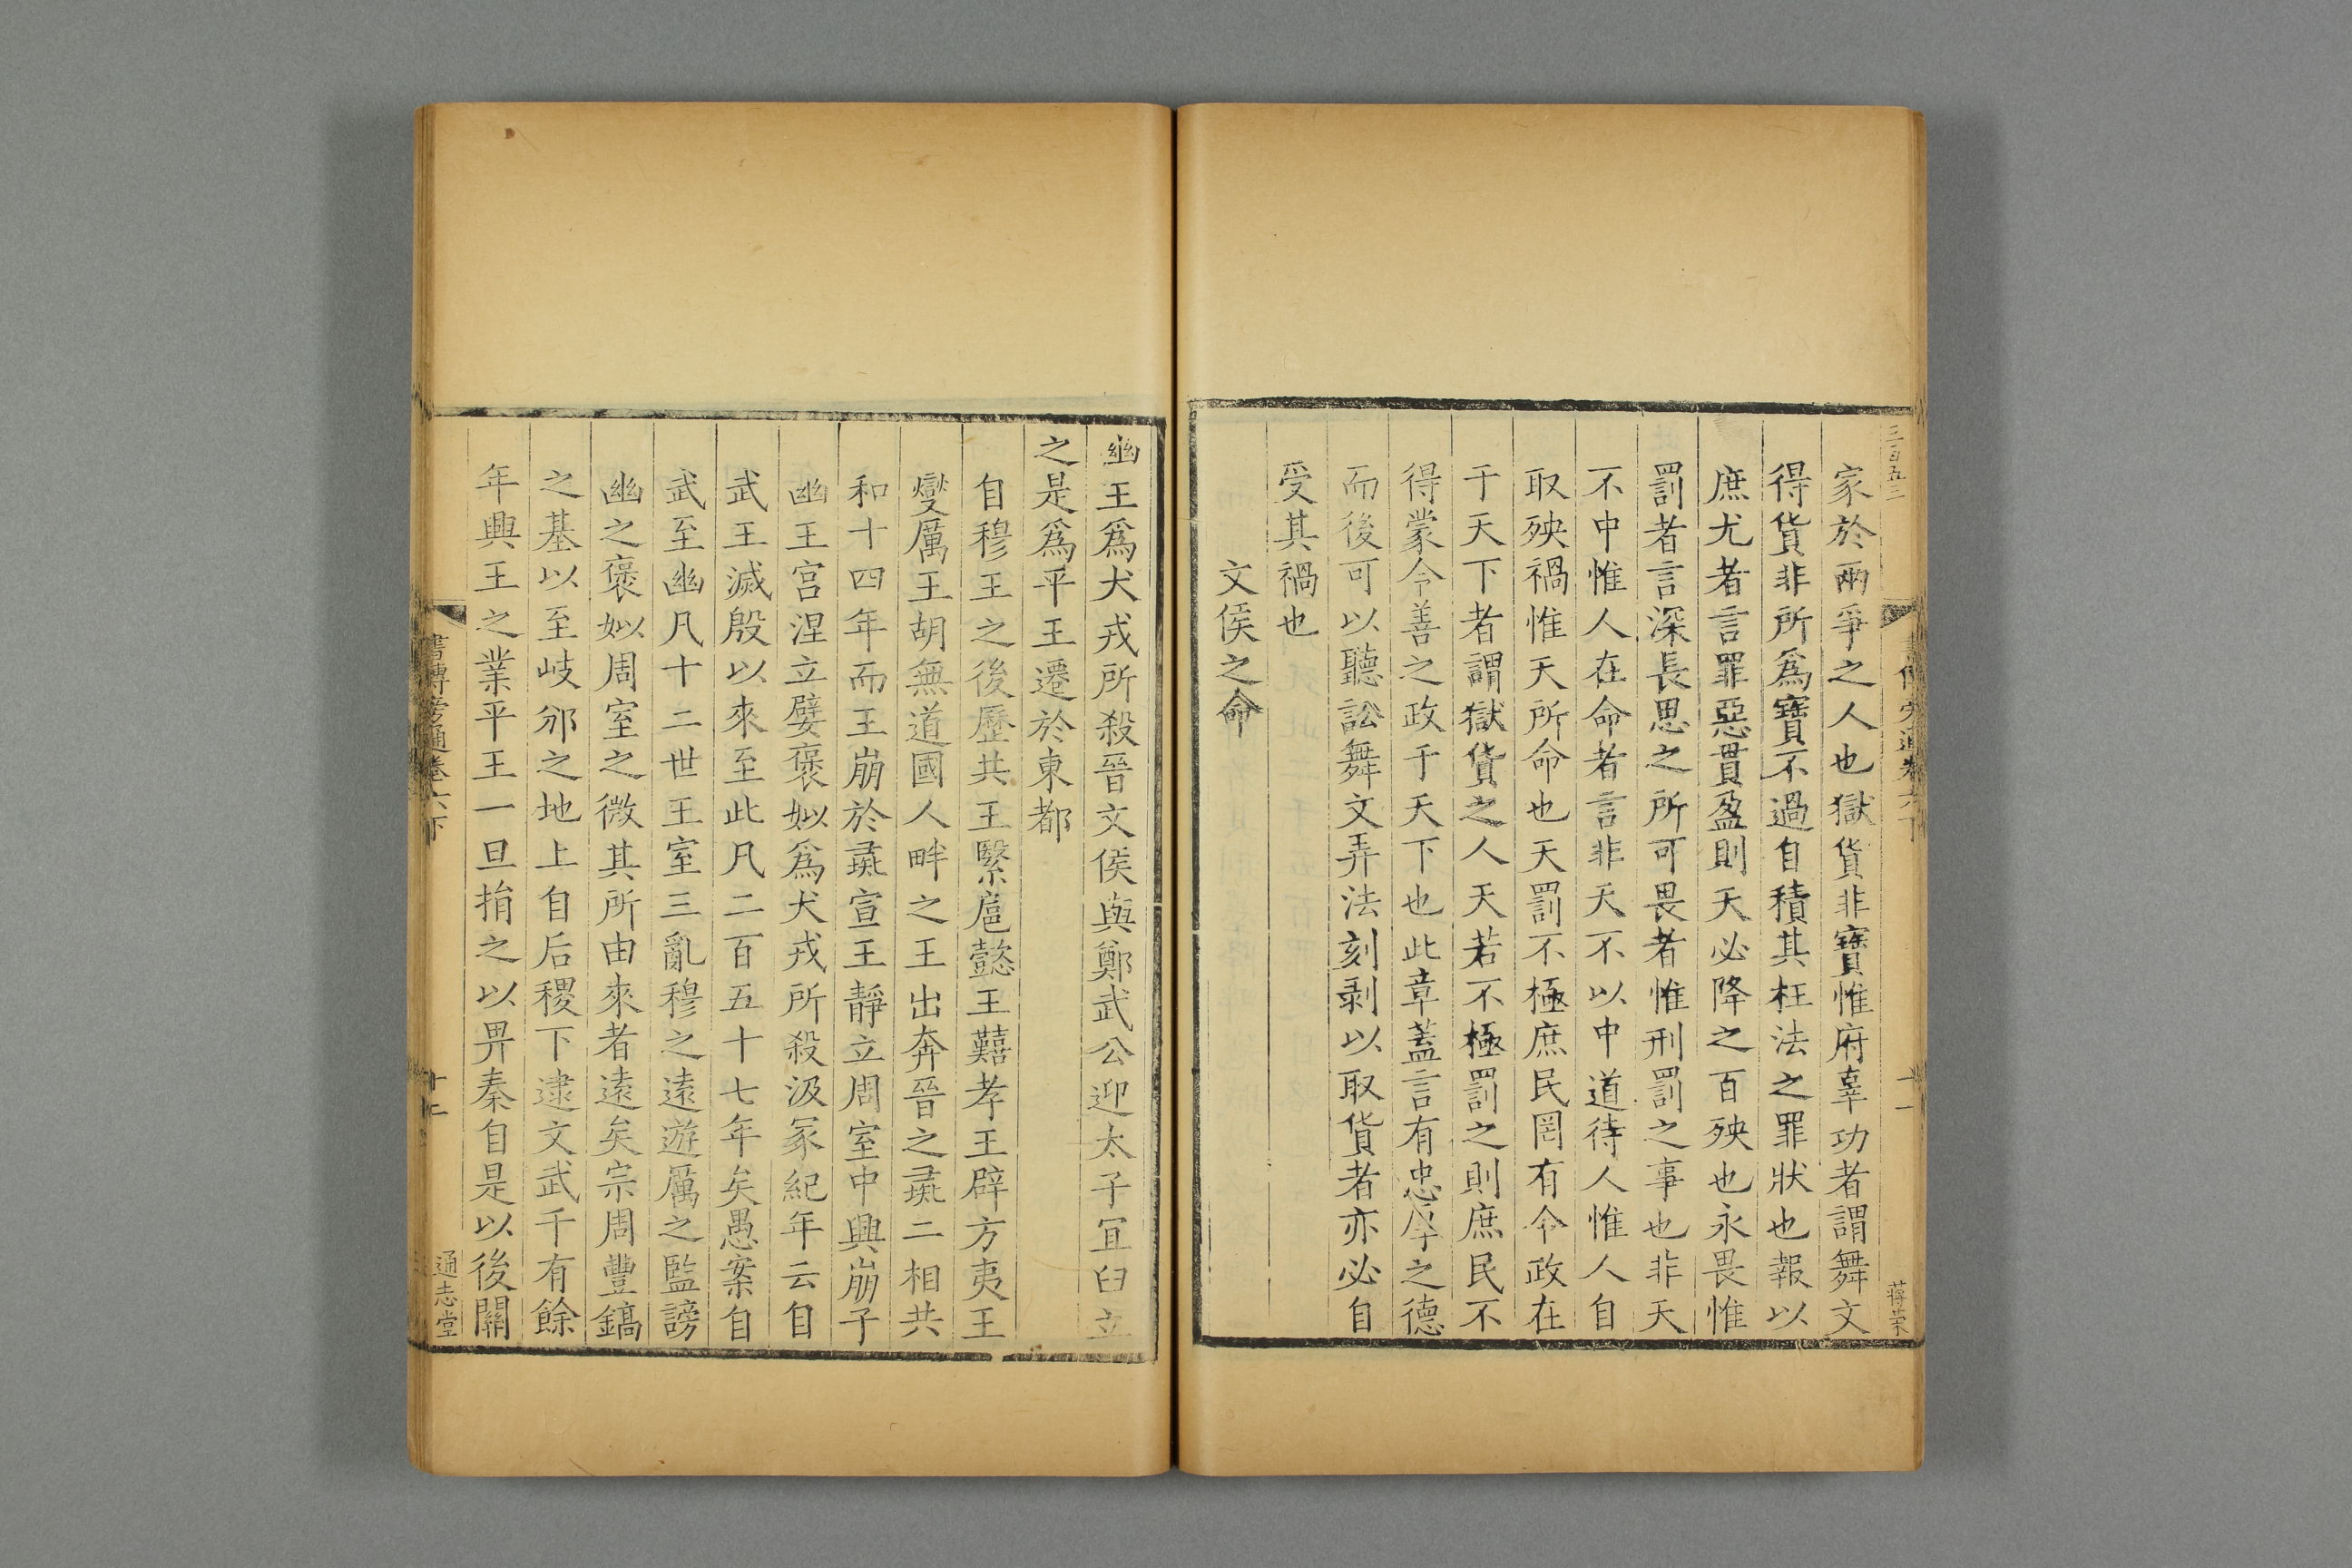 三百五三
書傳旁通卷六下
十一
蔣榮
家於兩爭之人也獄貨非寶惟府辜功者謂舞文
得貨非所爲寶不過自積其枉法之罪狀也報以
庶尤者言罪惡貫盈則天必降之百殃也永畏惟
罰者言深長思之所可畏者惟刑罰之事也非天
不中惟人在命者言非天不以中道待人惟人自
取殃禍惟天所命也天罰不極庶民罔有令政在
于天下者謂獄貨之人天若不極罰之則庶民不
得蒙令善之政于天下也此章蓋言有忠厚之德
而後可以聽訟舞文弄法刻剥以取貨者亦必自
受其禍也
文侯之命
幽王爲犬戎所殺晉文侯與鄭武公迎太子宜臼立
之是爲平王遷於東都
自穆王之後歷共王繄扈懿王囏孝王辟方夷王
燮厲王胡無道國人畔之王出奔晉之彘二相共
和十四年而王崩於彘宣王靜立周室中興崩子
幽王宮涅立嬖褒姒爲犬戎所殺汲冢紀年云自
武王滅殷以來至此凡二百五十七年矣愚案自
武至幽凡十二世王室三亂穆之遠遊厲之監謗
幽之褒姒周室之微其所由來者遠矣宗周豐鎬
之基以至岐邠之地上自后稷下逮文武千有餘
年興王之業平王一旦捐之以畀秦自是以後關
書傳旁通卷六下
十二
通志堂